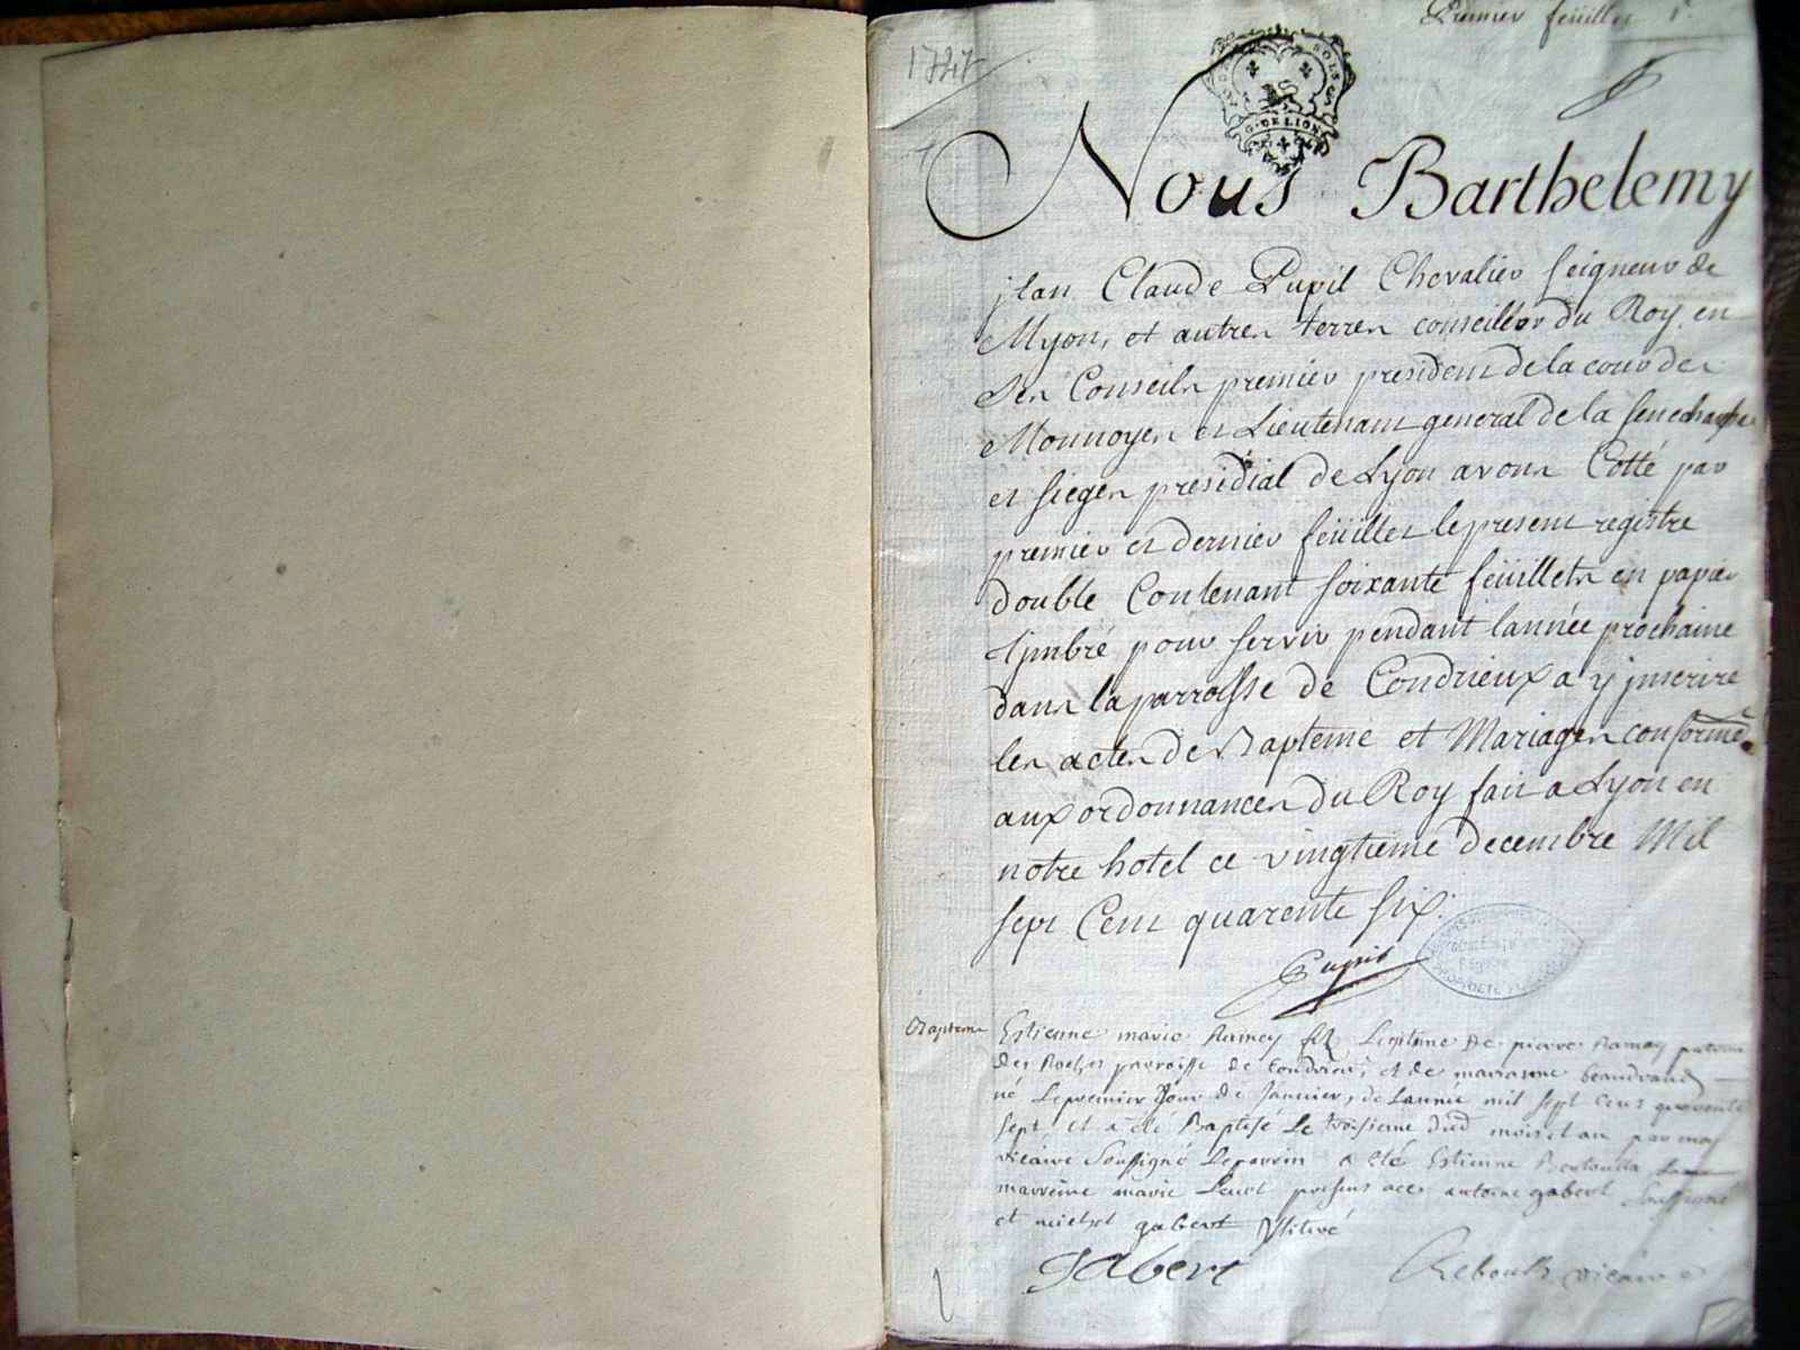 Premier feüillet 1.
1747
G. DE LION
Nous Barthelemy
jean Claude Pupil Chevalier seigneur de
Myons, et autres terres conseiller du Roy en
ses Conseils premier president de la cour des
Monnoyes et Lieutenant general de la senechaussée
et sieges presidial de Lyon avons Cotté par
premier et dernier feüillet le present registre
double Contenant soixante feüillets en papier
timbré pour servir pendant lannée prochaine
dans la parroisse de Condrieux a y jnscrire
les actes de Bapteme et Mariages conformé.
aux ordonnances du Roy fait a Lyon en
notre hotel ce vingtieme decembre Mil
sept Cent quarente six.
Pupil
Bapteme
Estienne marie Ramey fils Legitime de pierre Ramey patron
des Roches parroisse de Condrieu, et de marianne beaudrand
né Le premier Jour de Janvier, de Lannée mil sept Cent quarente
sept et a été Baptisé Le troisieme dud mois et an par moy
vicaire soussigné Le parrin a été Estienne La
marreine marie presens acec antoine gabert soussigné
et michel gabert Illiteré
gabert
Reboult vicaire